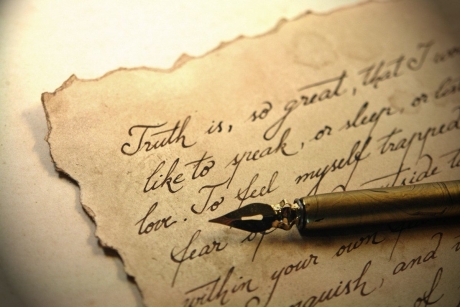 Truth is, so great, that I wo
like to speak, or sleep, or
love. To feel myself trapped
fear
within your own
and
of